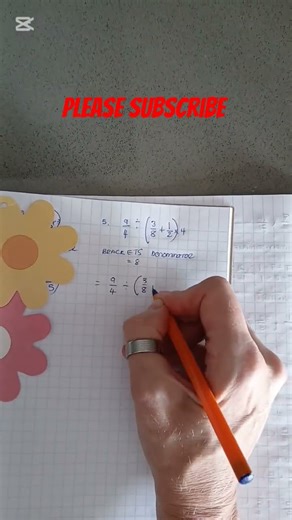 PLEASE SUBSCRIBE
5. 9/4 ÷ (3/8 + 1/2) × 4
BRACKETS DENOMINATOR
= 8
5)
= 9/4 ÷ (3/8